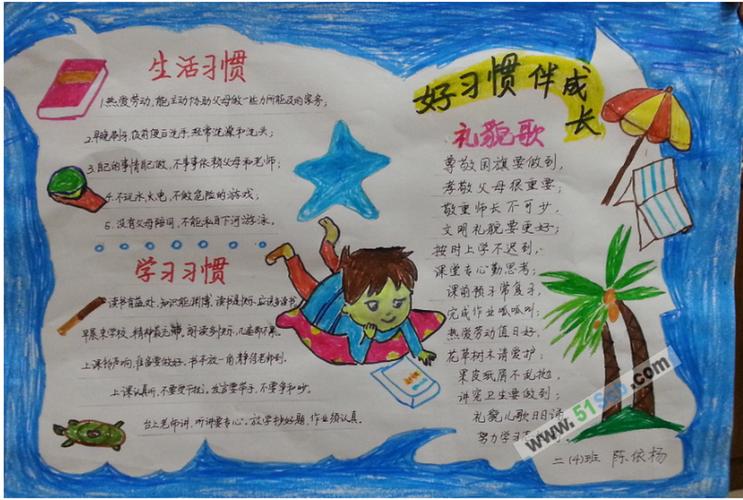 生活习惯
1.热爱劳动,能主动协助父母做一些力所能及的家务;
2.早晚刷牙,饭前便后洗手,经常洗澡和洗头;
3.自己的事情自己做,不事事依赖父母和老师;
4.不玩水,火,电,不做危险的游戏;
5.没有父母陪同,不能私自下河游泳。
学习习惯
读书有益处,知识能渊博,读书是快乐,应该多读书
早晨来学校,精神最充沛,朗读多快乐,
上课铃声响,准备要做好,书本放一角,静待老师到。
上课认真听,不要受干扰,发言要举手,不要争和吵。
台上老师讲,听讲要专心,放学抄好题,作业须认真。
好习惯伴成长
礼貌歌
尊敬国旗要做到,
孝敬父母很重要;
敬重师长不可少,
文明礼貌要更好;
按时上学不迟到,
课堂专心勤思考;
课前预习常复习,
完成作业呱呱叫;
热爱劳动值日好,
花草树木请爱护;
果皮纸屑不乱抛,
讲究卫生要做到;
礼貌儿歌日日诵
努力学习
二(4)班 陈依杨
www.515ppt.com